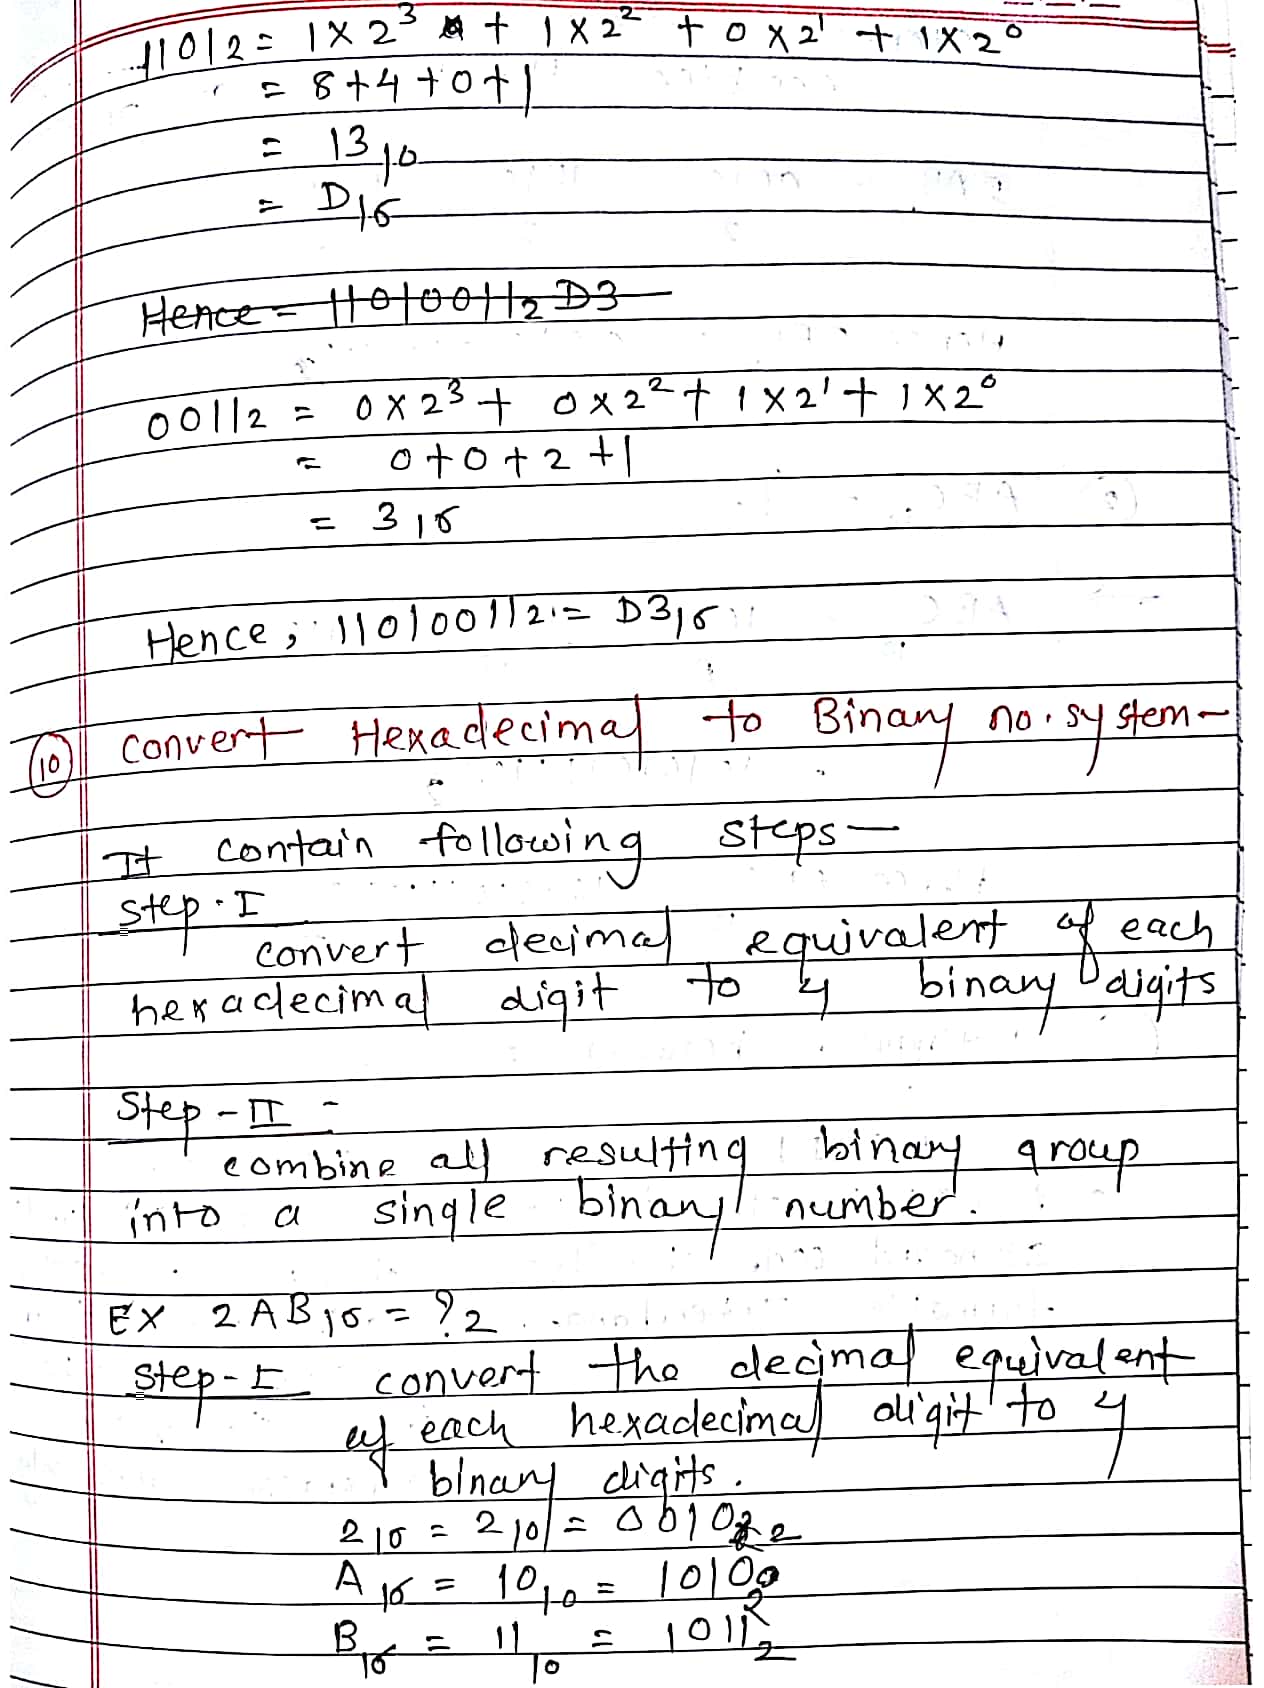 1101₂ = 1×2³ + 1×2² + 0×2¹ + 1×2⁰
= 8+4+0+1
= 13₁₀
= D₁₆
Hence = 11010011₂ D3
0011₂ = 0×2³ + 0×2² + 1×2¹ + 1×2⁰
= 0+0+2+1
= 3₁₆
Hence; 11010011₂ = D3₁₆
10 convert Hexadecimal to Binary no. system -
It contain following steps —
step. I
convert decimal equivalent of each
hexadecimal digit to 4 binary digits
Step - II -
combine all resulting binary group
into a single binary number.
EX 2AB₁₆ = ?₂
step - I convert the decimal equivalent
of each hexadecimal digit to 4
binary digits.
2₁₆ = 2₁₀ = 0010₂
A₁₆ = 10₁₀ = 1010₂
B₁₆ = 11₁₀ = 1011₂